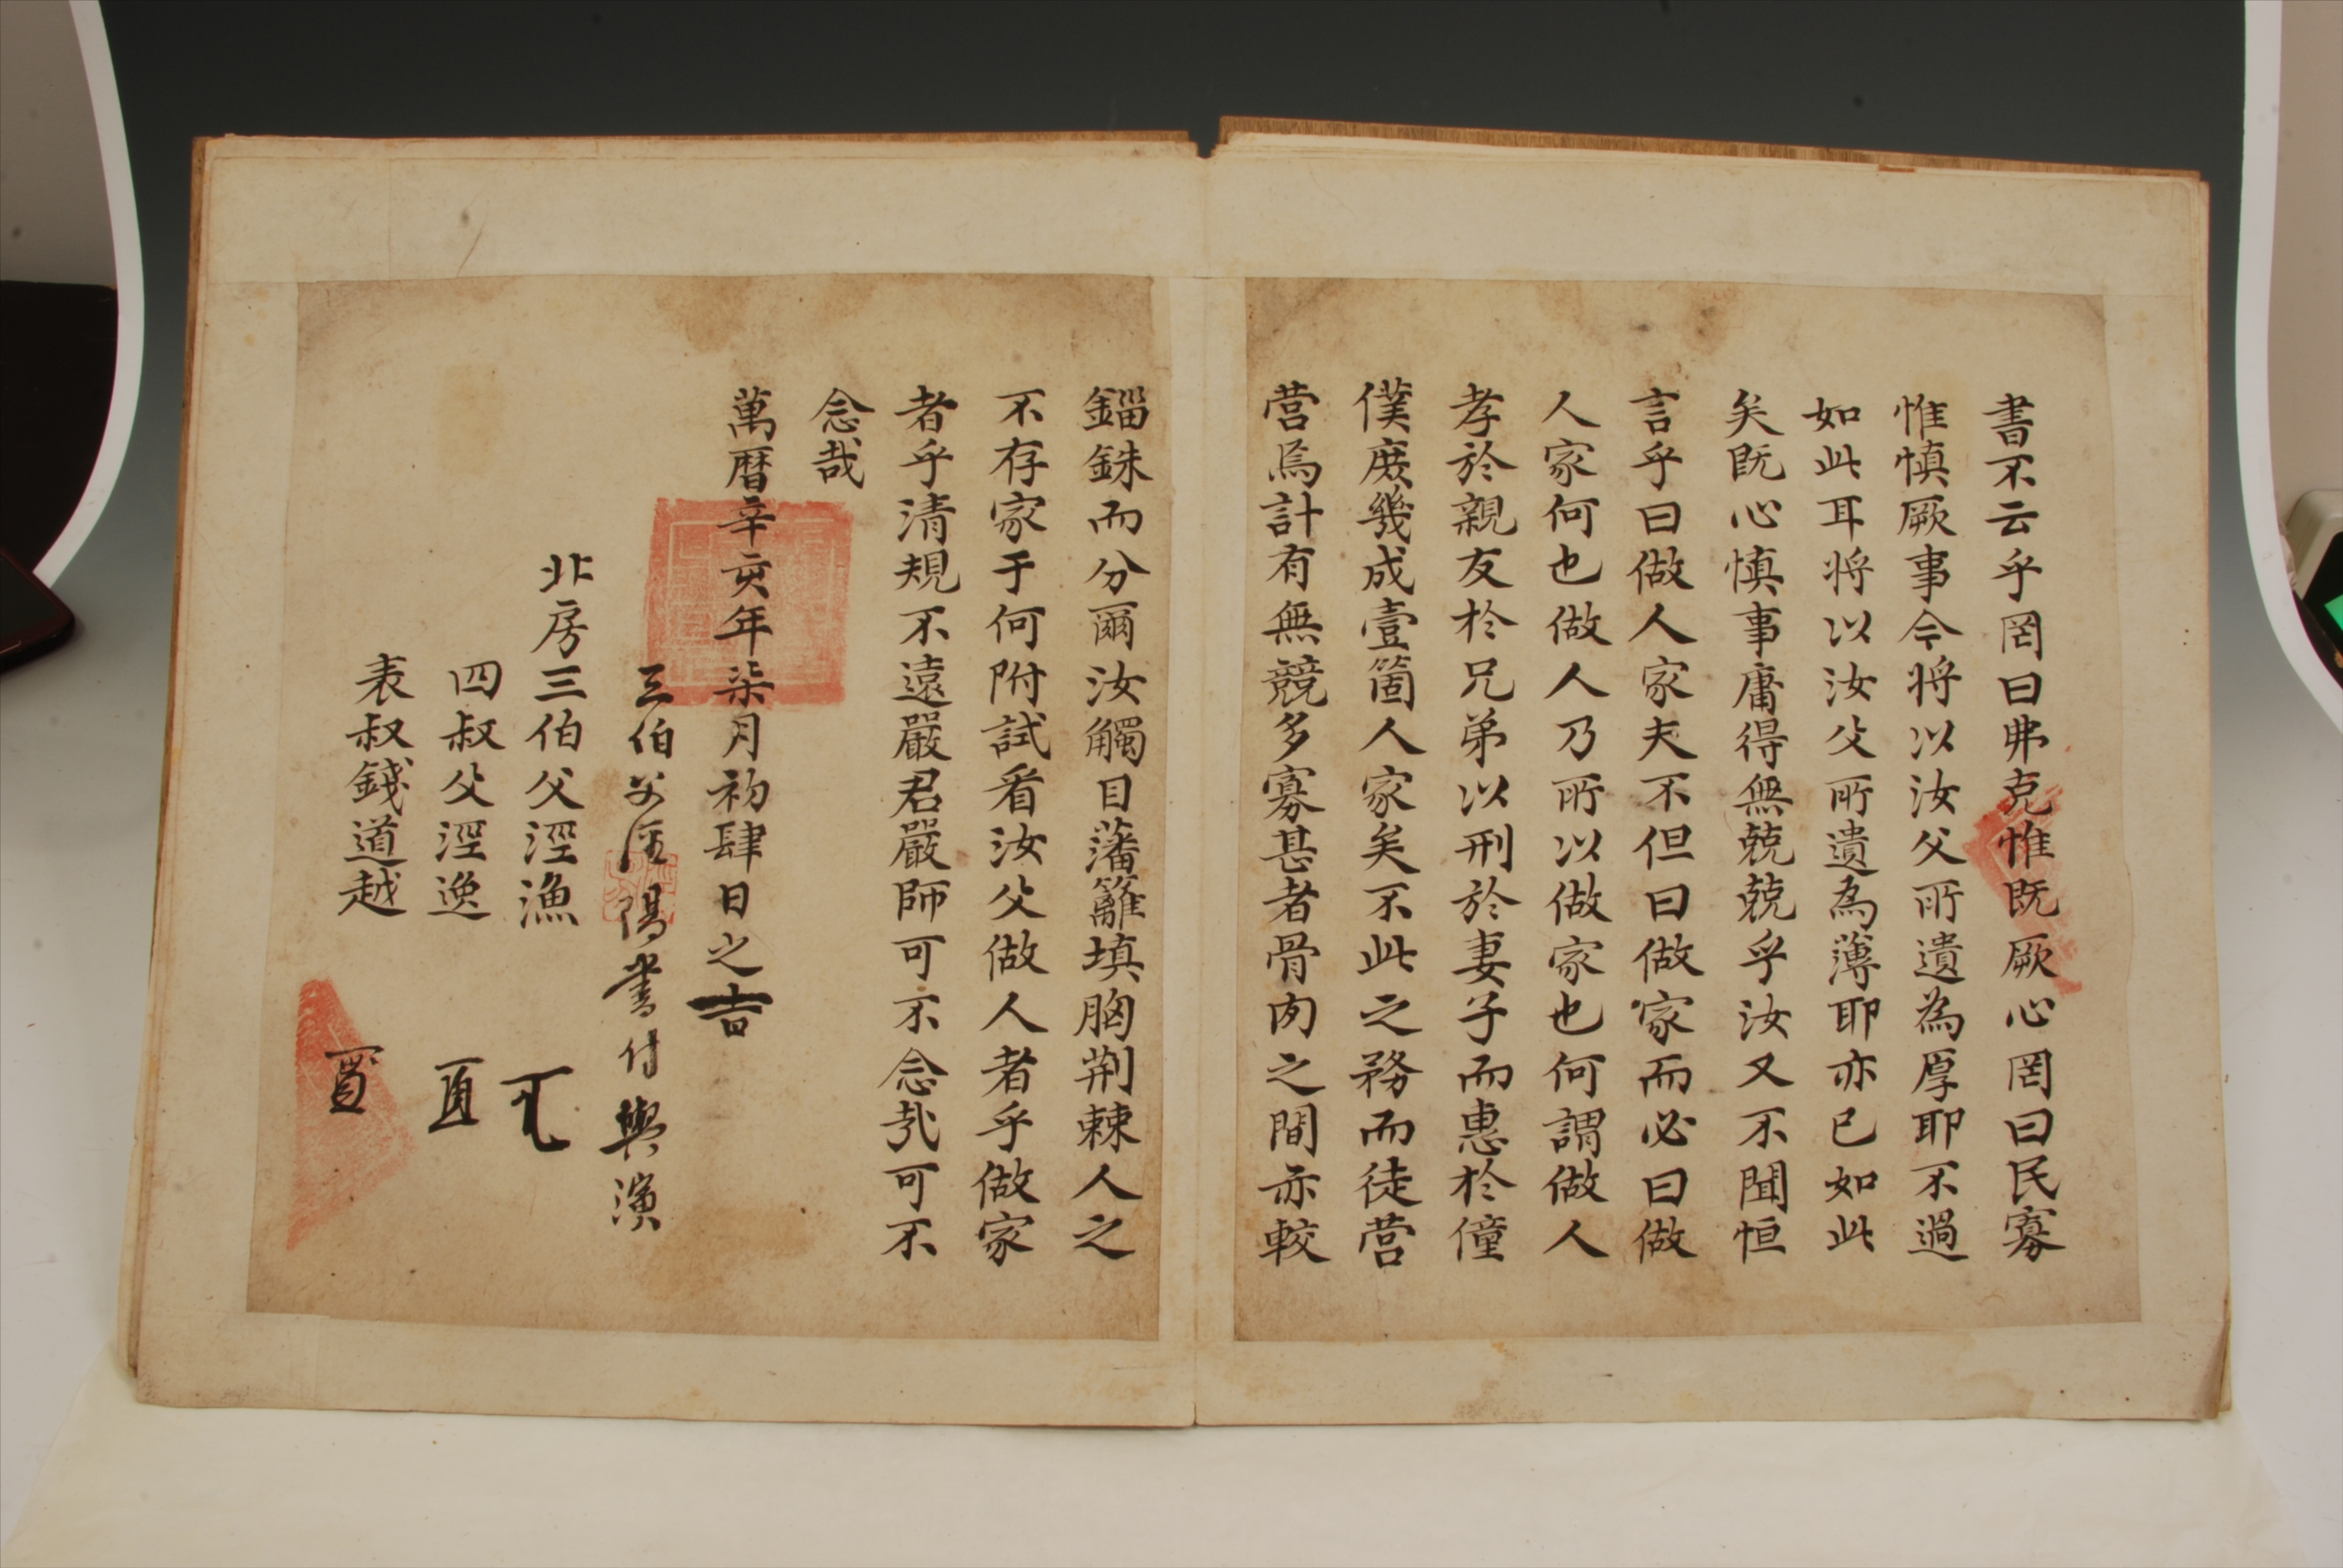 書不云乎罔曰弗克惟既厥心罔曰民寡
惟慎厥事今将以汝父所遺為厚耶不過
如此耳将以汝父所遺為薄耶亦已如此
矣既心慎事庸得無兢兢乎汝又不聞恒
言乎曰做人家夫不但曰做家而必曰做
人家何也做人乃所以做家也何謂做人
孝於親友於兄弟以刑於妻子而惠於僮
僕庶幾成壹箇人家矣不此之務而徒营
营焉計有無競多寡甚者骨肉之間亦較
錙銖而分爾汝觸目藩籬填胸荆棘人之
不存家于何附試看汝父做人者乎做家
者乎清規不遠嚴君嚴師可不念哉可不
念哉
萬曆辛亥年柒月初肆日之吉
三伯父陽書付與演
北房三伯父涇漁
四叔父涇逸
表叔錢道越